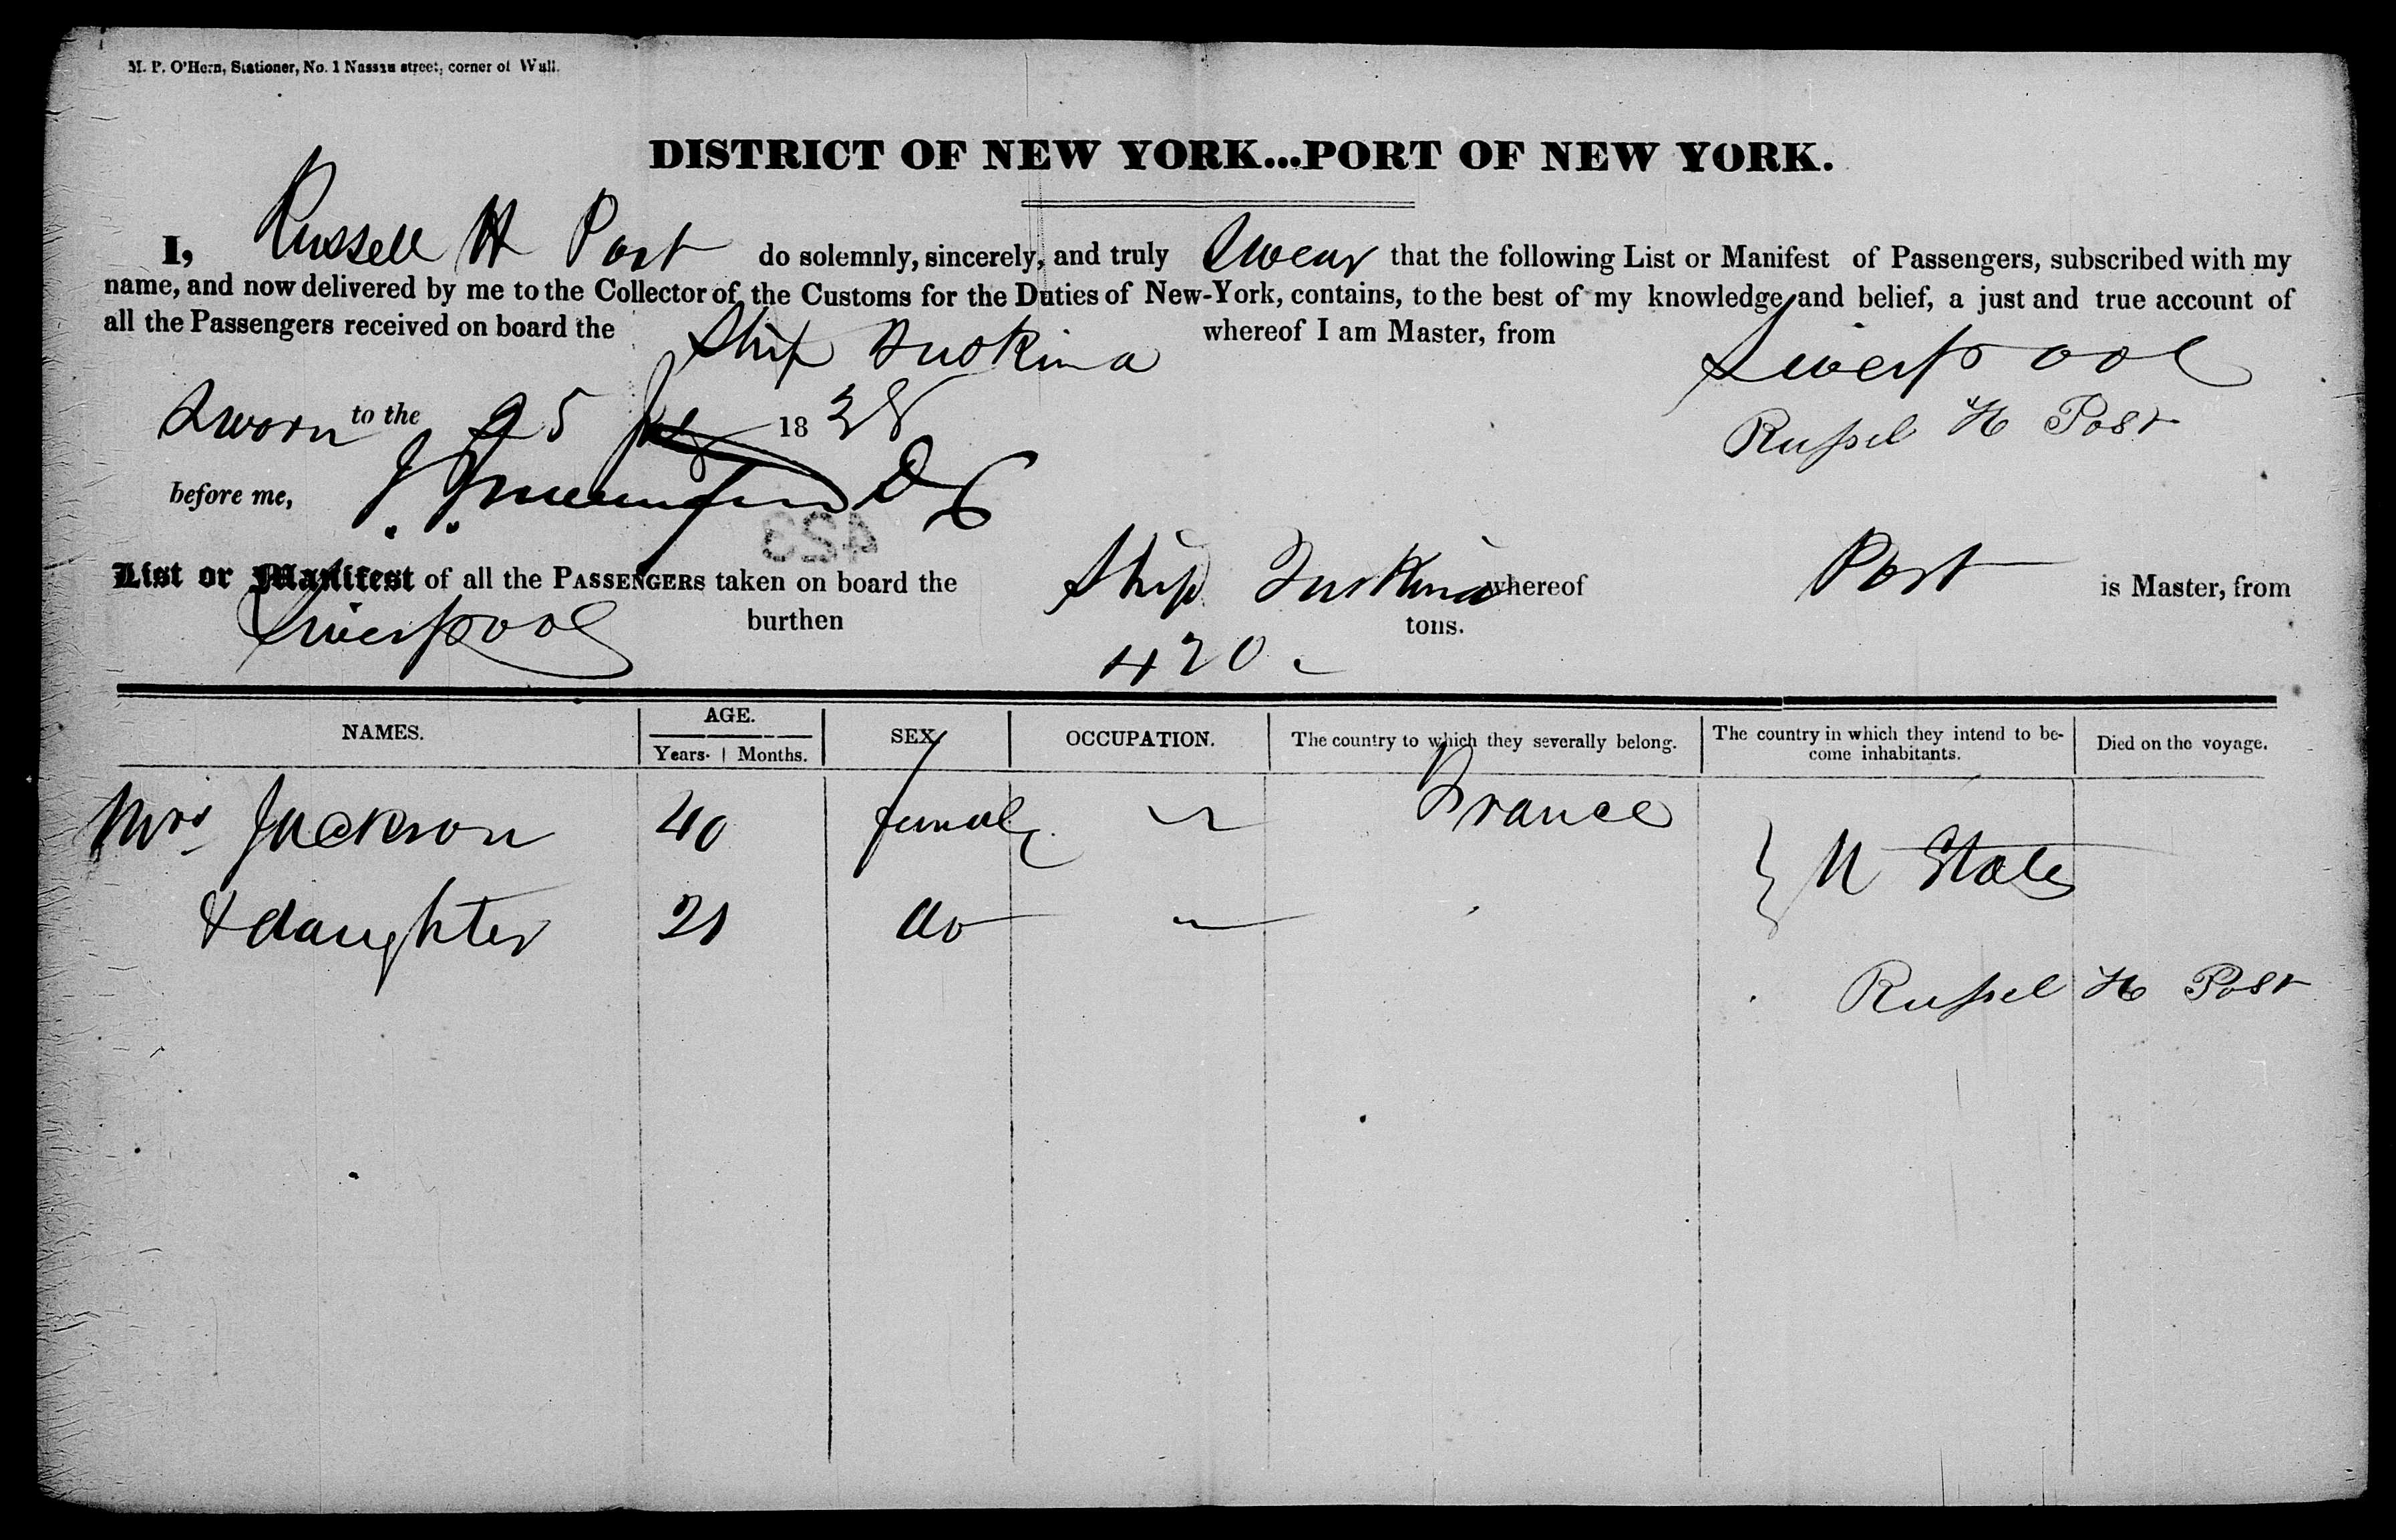 M. P. O'Hern, Stationer, No. 1 Nassau street, corner of Wall.
DISTRICT OF NEW YORK...PORT OF NEW YORK.
I, Russell H Post do solemnly, sincerely, and truly Swear that the following List or Manifest of Passengers, subscribed with my
name, and now delivered by me to the Collector of the Customs for the Duties of New-York, contains, to the best of my knowledge and belief, a just and true account of
all the Passengers received on board the Ship Tuskina whereof I am Master, from Liverpool
Sworn to the 25 1838
Russel H Post
before me,
423
List or Manifest of all the PASSENGERS taken on board the Ship Tuskina whereof Post is Master, from
Liverpool burthen 420 tons.
NAMES. AGE. SEX. OCCUPATION. The country to which they severally belong. The country in which they intend to be-come inhabitants. Died on the voyage.
Years. Months.
Mrs Jackson 40 female France
U States
& daughter 21 do
Russel H Post